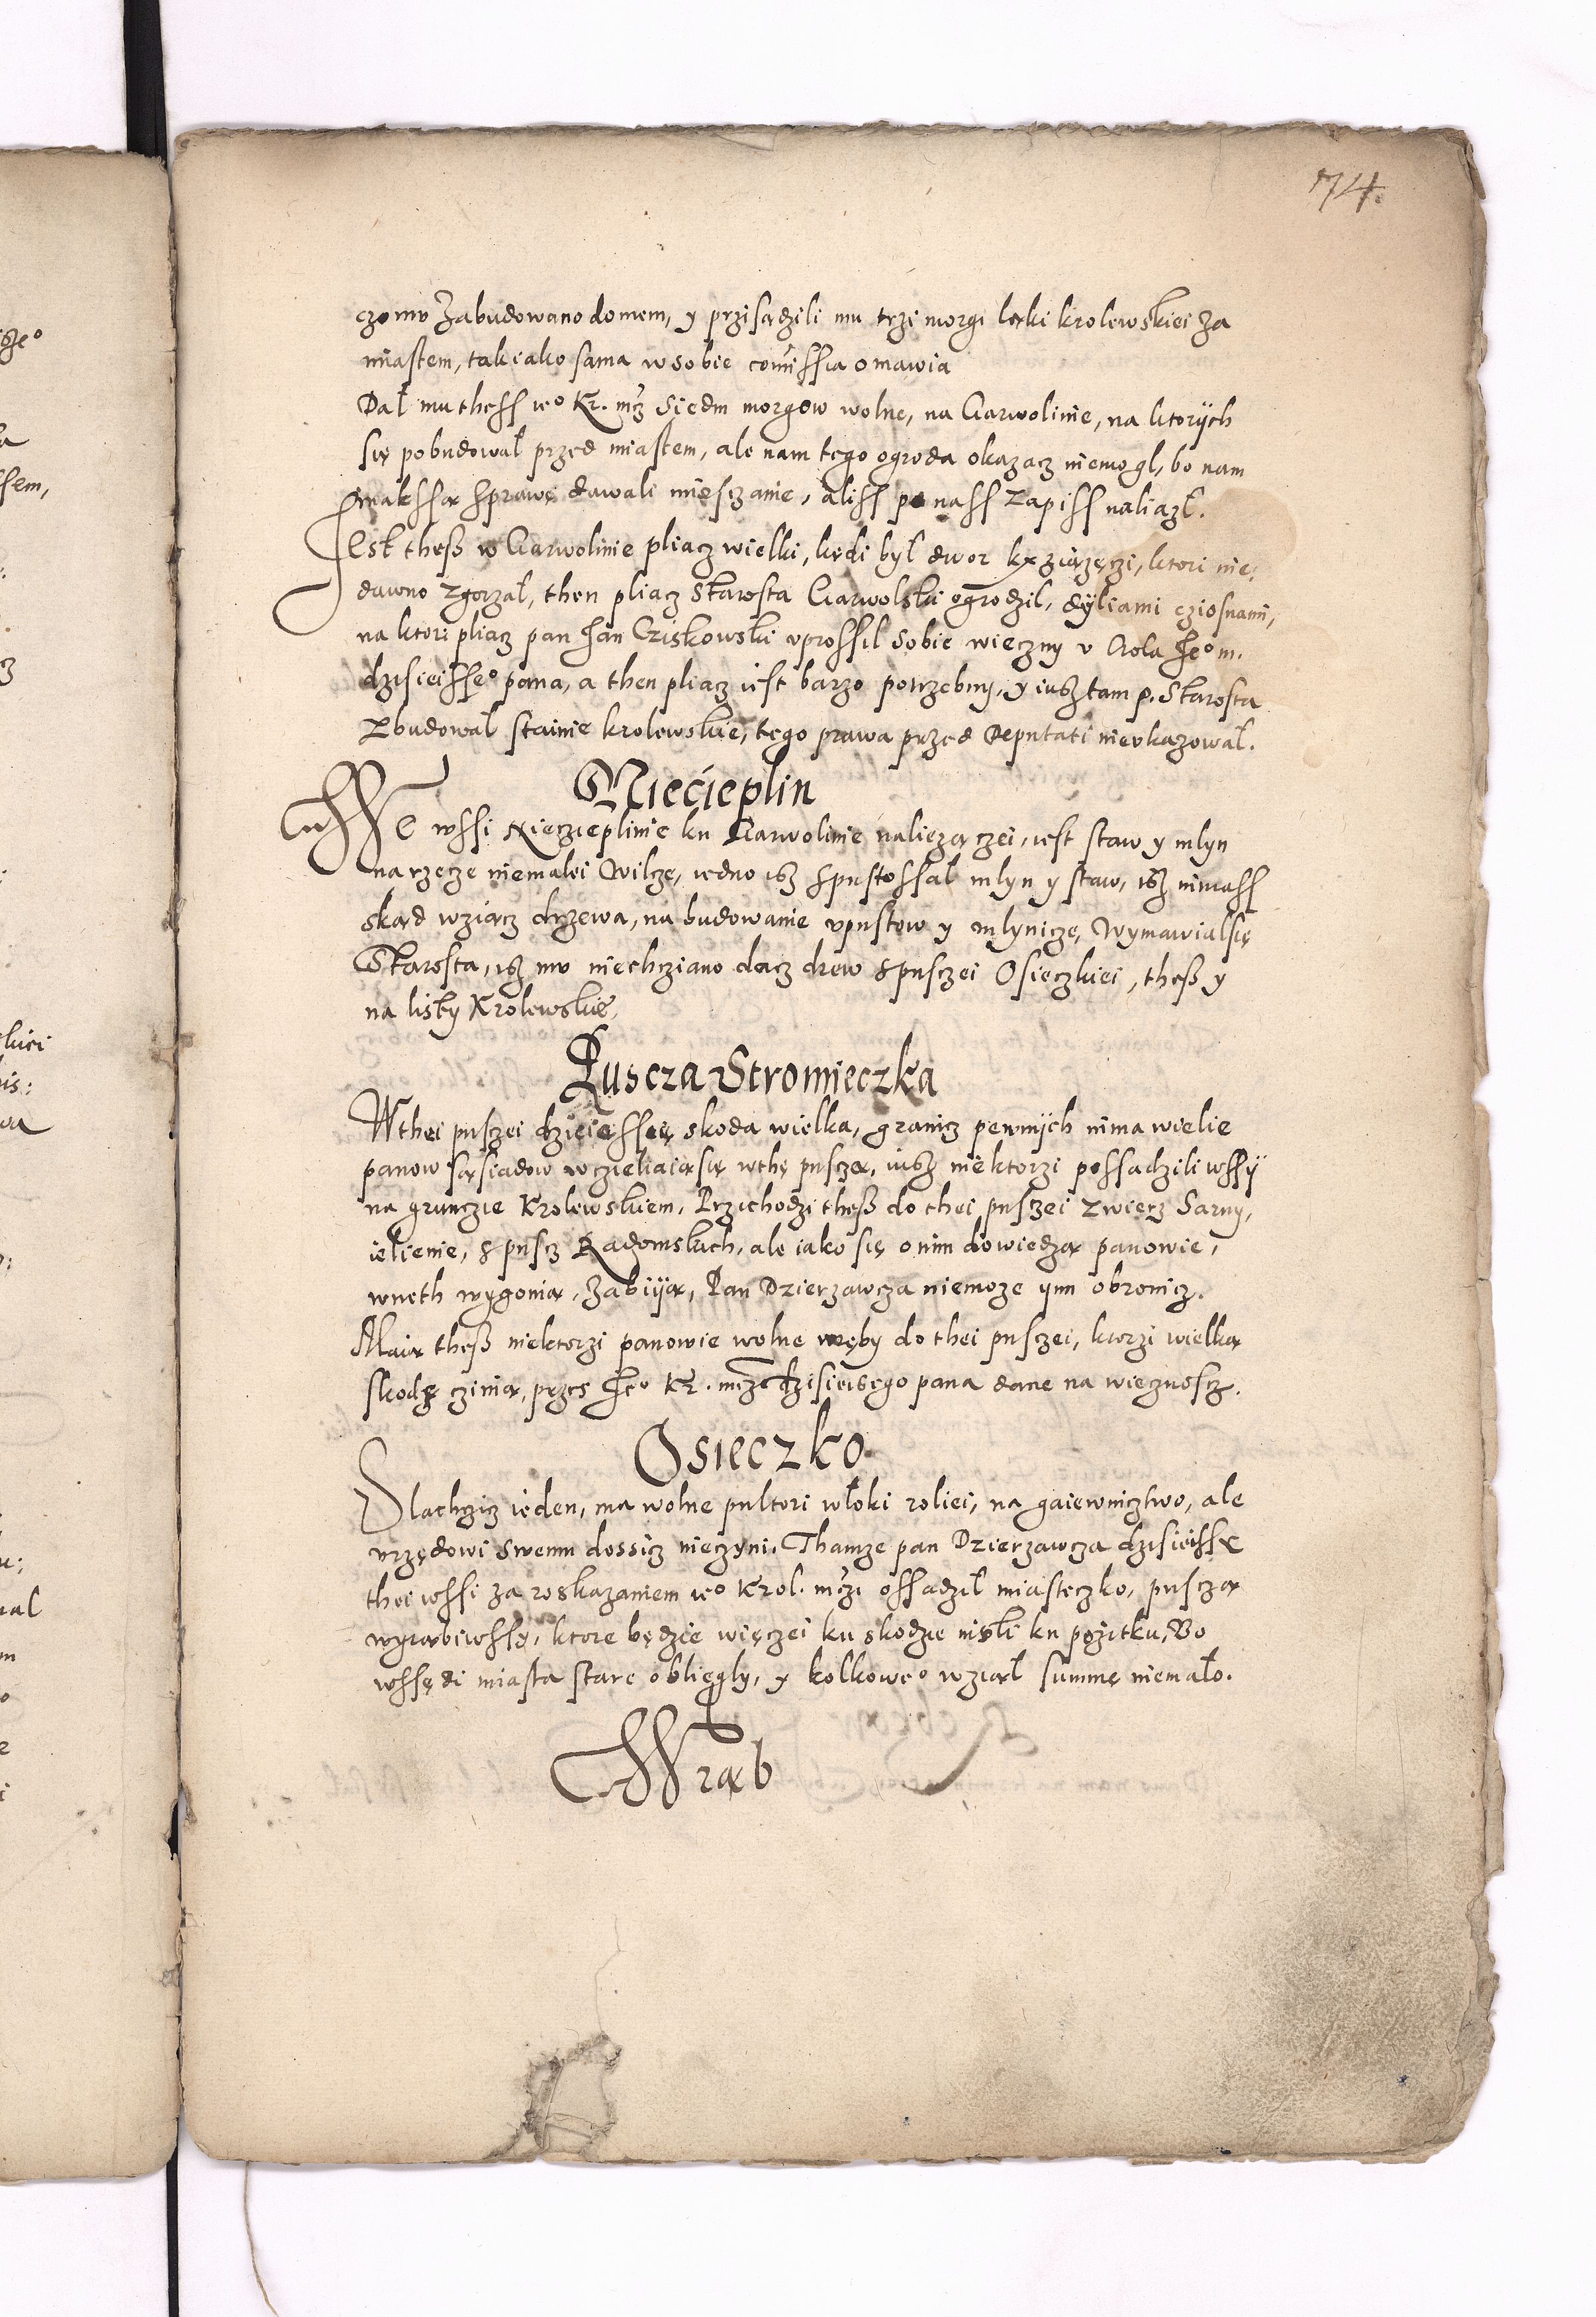 74.
czomv zabudowano domem, y przisądzili mu trzi morgi ląki krolewskiei za
miastem, tak iako sama w sobie comissia omawia
Dał mu thess ieº Kr. mcz Siedm morgow wolne, na Garwolinie, na ktorÿch
się pobudował przed miastem, ale nam tego ogroda okazacz niemogl, bo nam
inakssą sprawę dawali miesczanie, aliss po nass zapiss naliazł.
Jest theß w Garwolinie pliacz wielki, kędi był dwor kxziążęczi, ktori nie:
dawno zgorzał, then pliacz Starosta Garwolski ogrodzil, dÿliami cziosnami,
na ktori pliacz pan Jan Cziskowski vprossil sobie wieczny v Krola Jeº m.
dzisieisseº pana, a then pliacz iest barzo potrzebny, y iusz tam p. Starosta
zbudował stainie krolewskie, tego prawa przed Deputati nievkazował.
Niecieplin
We wssi Niecziеplinie ku Garwolinie naliezączei, iest staw y mlyn
na rzecze niemałei Wilcze, iedno isz spustossał mlyn y staw, isz nimass
skąd wziącz drzewa, na budowanie vpustow y mlynicze, Wymawialsię
Starosta, isz mv niechcziano dacz drew s pusczei Osieczkiei, theß y
na listy Krolewskie,
Puscza Stromieczka
W thei pusczei dzieiessię skoda wielka, granicz pewnÿch nima wielie
panow sąsiadow wczieliaiąsię w thę pusczą, iusz niektorzi possadzili wssÿ
na gruncзie Krolewskiem, Przichodzi theß do thei pusczei zwierz Sarny,
ielienie, s puscz Radomskich, ale iako się o nim dowiedzą panowie,
wneth wygonią, zabiÿą, Pan Dzierzawcza niemoze ym obronicz.
Maią theß niektorzi panowie wolne wręby do thei pusczei, ktorzi wielką
skodę czinią, przes Jeº Kr. mcz dzisieisego pana dane na wiecznoscz.
Osieczko
Slachcicz ieden, ma wolne pultori włoki roliei, na gaiewnicztwo, ale
vrzędowi swemu dossicz nieczyni. Thamze pan Dzierzawcza dzisieissy
thei wssi za roskazaniem ieº Krol. mczi ossadził miasteczko, pusczą
wyrąbiwssy, ktore będzie więczei ku skodzie nisli ku pozitku, Bo
wssędi miasta stare obliegly, y kolkoweº wziął summę niemało.
Wrąb